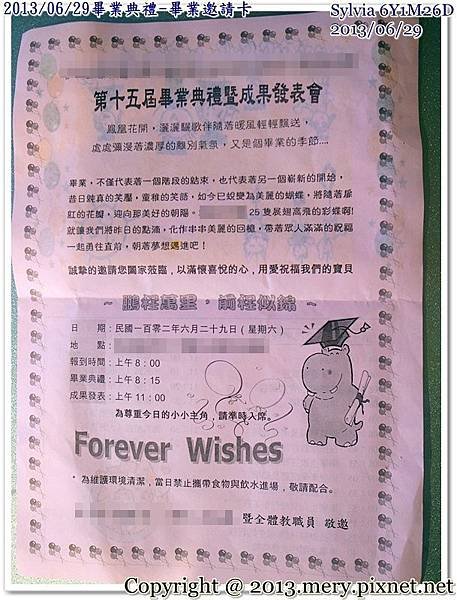 2013/06/29畢業典禮-畢業邀請卡
Sylvia 6Y1M26D
2013/06/29
第十五屆畢業典禮暨成果發表會
鳳凰花開，灑灑驪歌伴隨著暖風輕輕飄送，
處處彌漫著濃厚的離別氣氛，又是個畢業的季節....
畢業，不僅代表著一個階段的結束，也代表著另一個嶄新的開始，
昔日純真的笑靨，童稚的笑語，如今已蛻變為美麗的蝴蝶，將隨著扉
紅的花瓣，迎向那美好的朝陽。 25 隻展翅高飛的彩蝶啊!
就讓我們將昨日的點滴，化作串串美麗的回憶，帶著眾人滿滿的祝福
一起勇往直前，朝著夢想邁進吧！
誠摯的邀請您闔家蒞臨，以滿懷喜悅的心，用愛祝福我們的寶貝
~ 鵬程萬里，前程似錦 ~
日 期：民國一百零二年六月二十九日（星期六）
地 點：
報到時間：上午 8：00
畢業典禮：上午 8：15
成果發表：上午 11：00
為尊重今日的小小主角，請準時入席。
Forever Wishes
* 為維護環境清潔，當日禁止攜帶食物與飲水進場，敬請配合。
暨全體教職員 敬邀
Copyright @ 2013.mery.pixnet.net